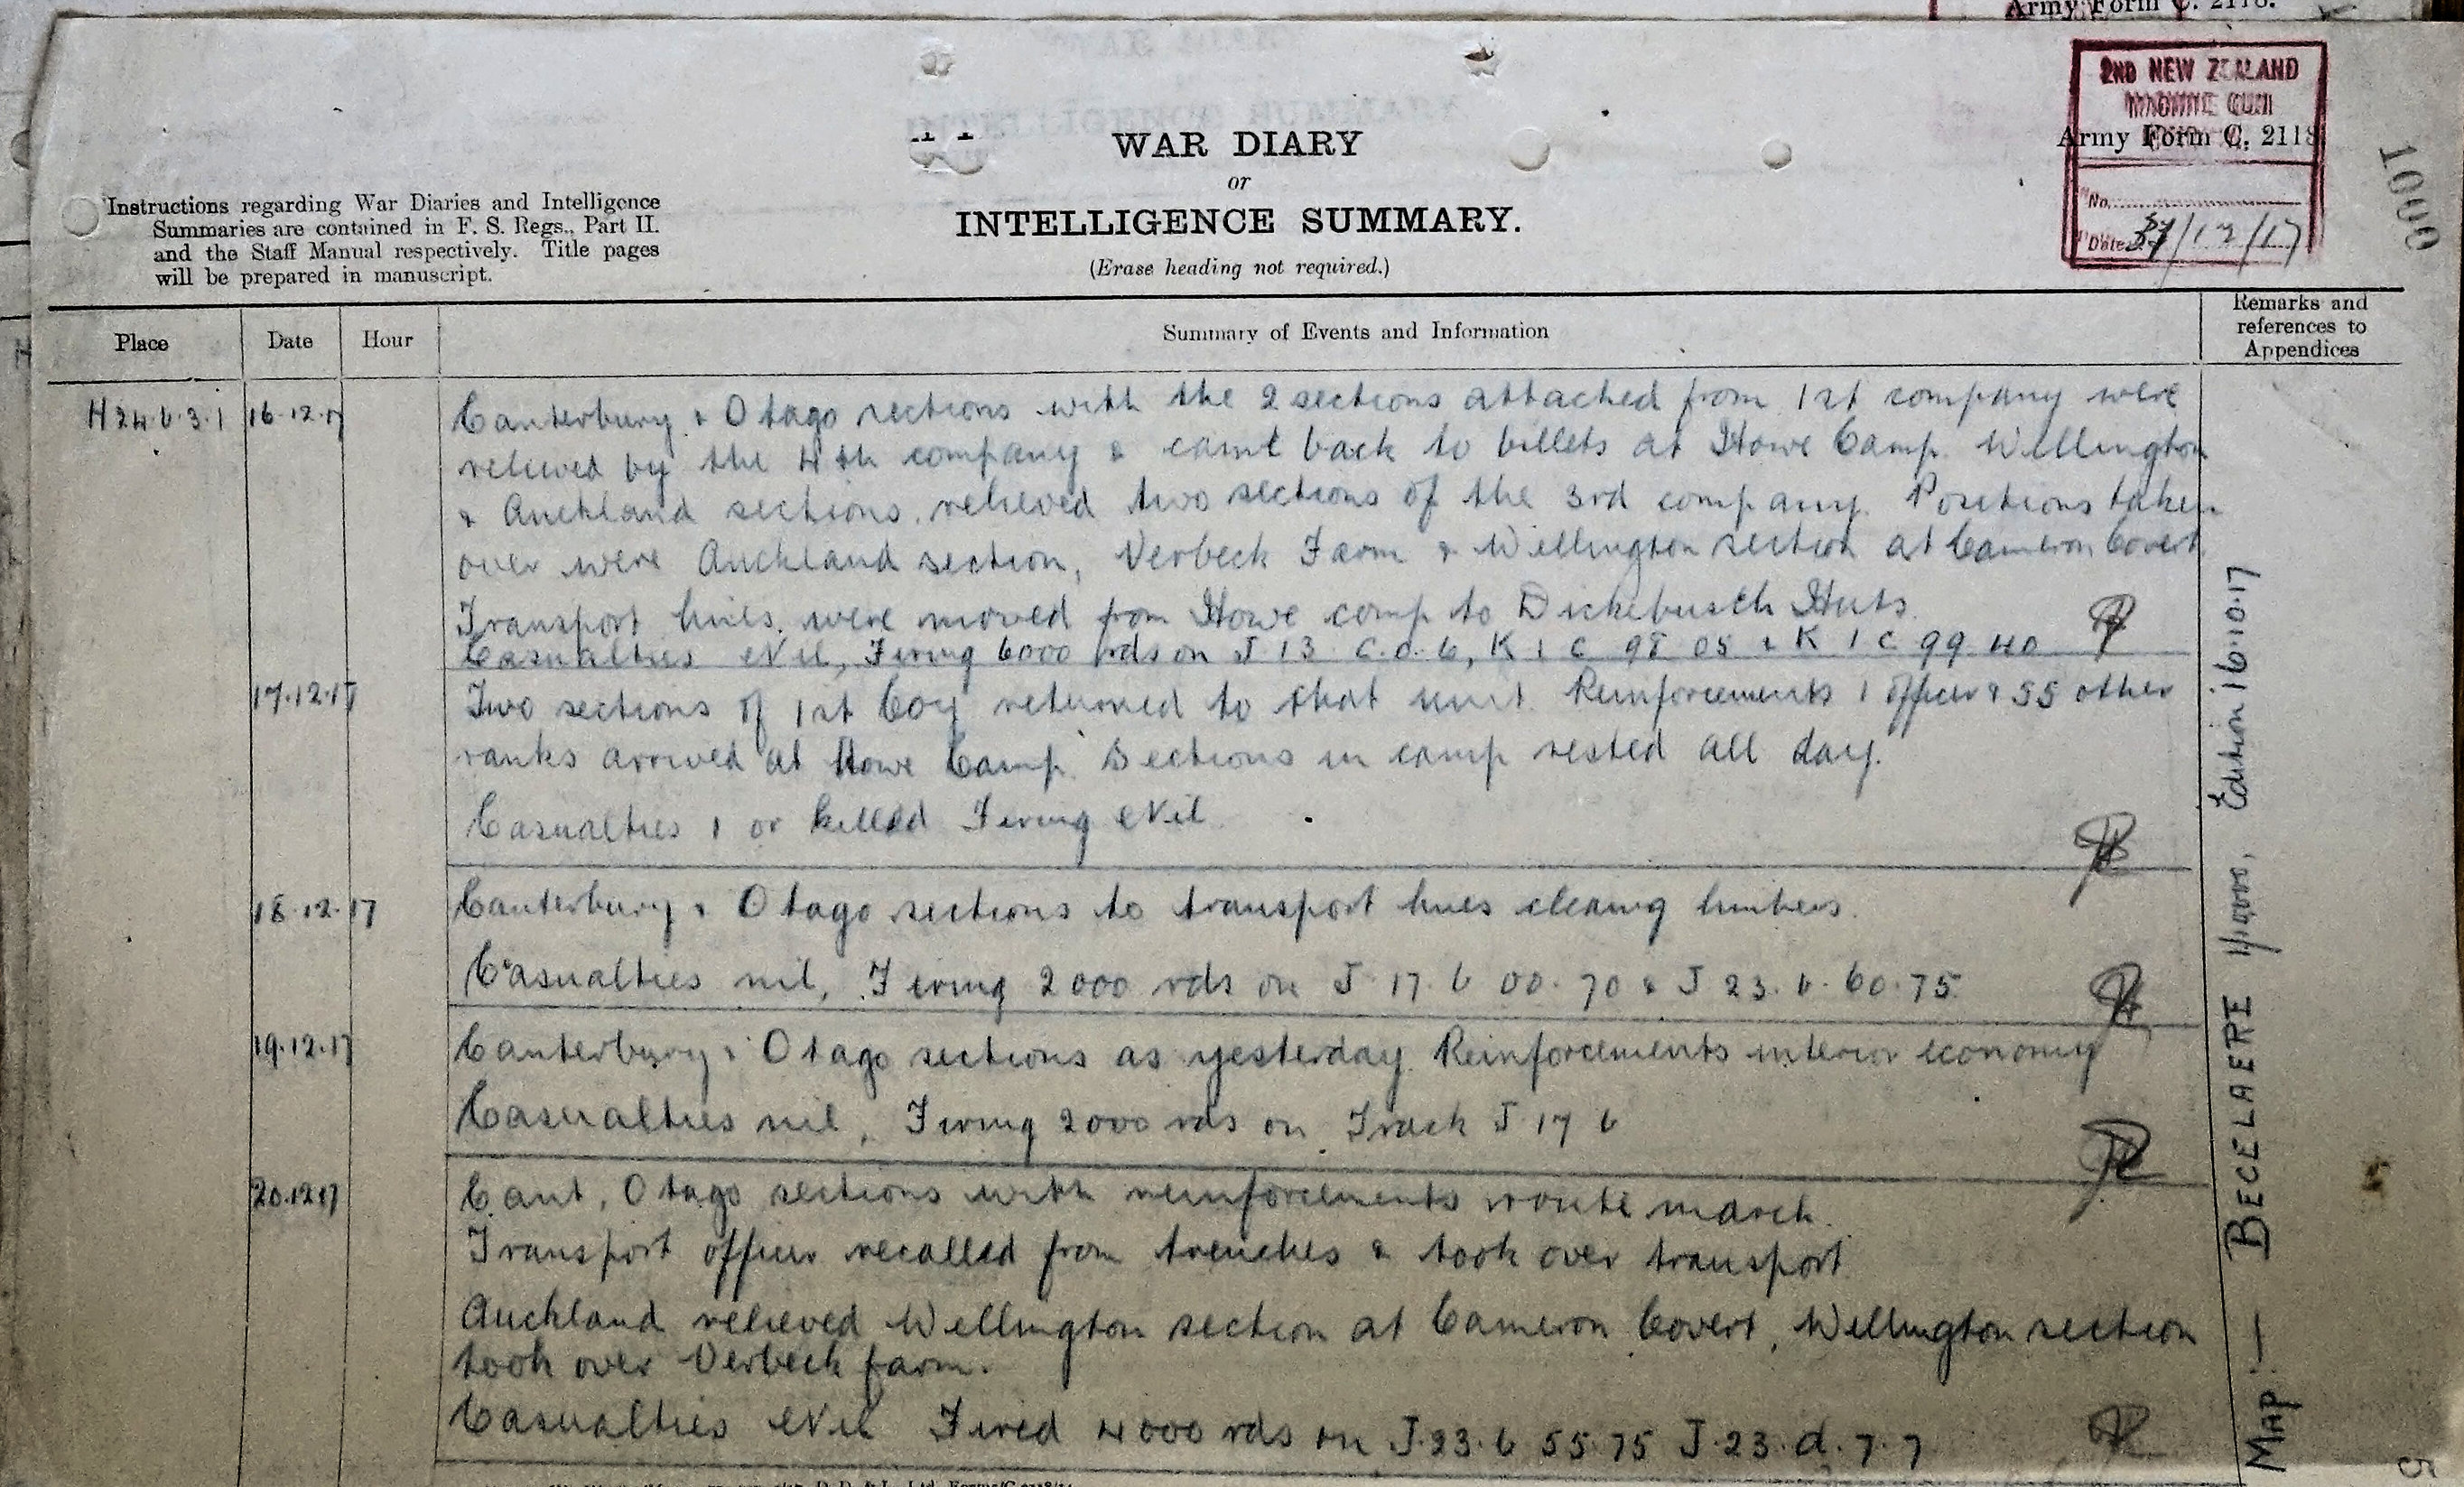 Army Form C. 2118.
2ND NEW ZEALAND
MACHINE GUN
Army Form C. 2118
No.
Date 31/12/17
1000
WAR DIARY
or
INTELLIGENCE SUMMARY.
(Erase heading not required.)
Instructions regarding War Diaries and Intelligence
Summaries are contained in F. S. Regs., Part II.
and the Staff Manual respectively. Title pages
will be prepared in manuscript.
Place Date Hour Summary of Events and Information Remarks and
references to
Appendices
H 24.b.3.1 16.12.17 Canterbury & Otago sections with the 2 sections attached from 1st company were
relieved by the 4th company & came back to billets at Howe Camp. Wellington
& Auckland sections relieved two sections of the 3rd company. Positions taken
over were Auckland section, Verbeck Farm & Wellington section at Cameron Covert
Transport lines were moved from Howe camp to Dickebusch Huts.
Casualties Nil, Firing 6000 rds on J 13 c.o.6, K 1 c 98 05 & K 1 c 99 40
17.12.17 Two sections of 1st Coy returned to that unit. Reinforcements 1 officer & 55 other
ranks arrived at Howe Camp. Sections in camp rested all day.
Casualties 1 or killed Firing Nil
18.12.17 Canterbury & Otago sections to transport lines cleaning limbers.
Casualties nil, Firing 2000 rds on J 17.b 00.70 & J 23.b.60.75
19.12.17 Canterbury & Otago sections as yesterday. Reinforcements interior economy
Casualties nil, Firing 2000 rds on Track J 17 b
20.12.17 Cant, Otago sections with reinforcements route march.
Transport officer recalled from trenches & took over transport
Auckland relieved Wellington section at Cameron Covert, Wellington section
took over Verbeck farm.
Casualties Nil Fired 4000 rds on J.23.b 55.75 J.23.d.7.7
MAP:— BECELAERE 1/10,000, Edition 16.10.17